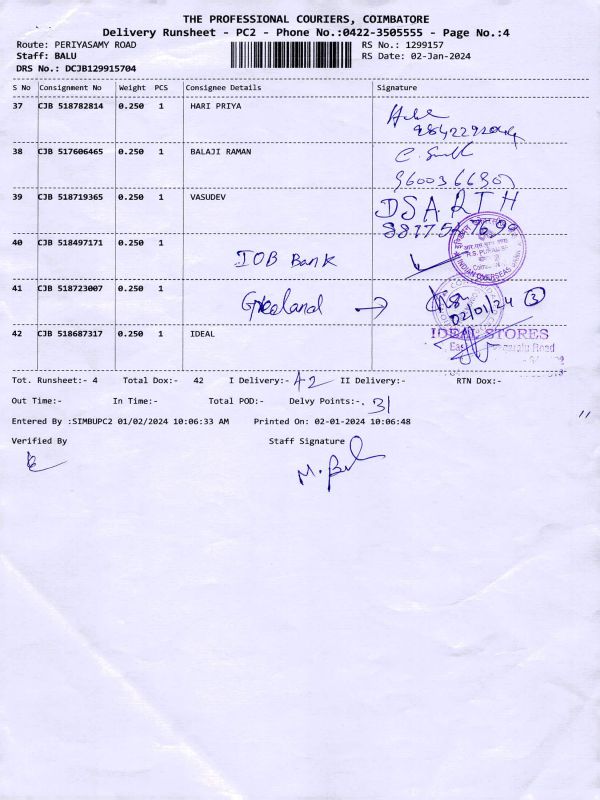 THE PROFESSIONAL COURIERS, COIMBATORE
Delivery Runsheet - PC2 - Phone No.:0422-3505555 - Page No.:4
Route: PERIYASAMY ROAD RS No.: 1299157
Staff: BALU RS Date: 02-Jan-2024
DRS No.: DCJB129915704
S No Consignment No Weight PCS Consignee Details Signature
37 CJB 518782814 0.250 1 HARI PRIYA
38 CJB 517606465 0.250 1 BALAJI RAMAN
39 CJB 518719365 0.250 1 VASUDEV DSARTH
40 CJB 518497171 0.250 1
IOB Bank
INDIAN OVERSEAS BANK
41 CJB 518723007 0.250 1
02/01/24 3
42 CJB 518687317 0.250 1 IDEAL IDEAL STORES
Road
Tot. Runsheet:- 4 Total Dox:- 42 I Delivery:- 42 II Delivery:- RTN Dox:-
Out Time:- In Time:- Total POD:- Delvy Points:-. 31
Entered By :SIMBUPC2 01/02/2024 10:06:33 AM Printed On: 02-01-2024 10:06:48
Verified By Staff Signature